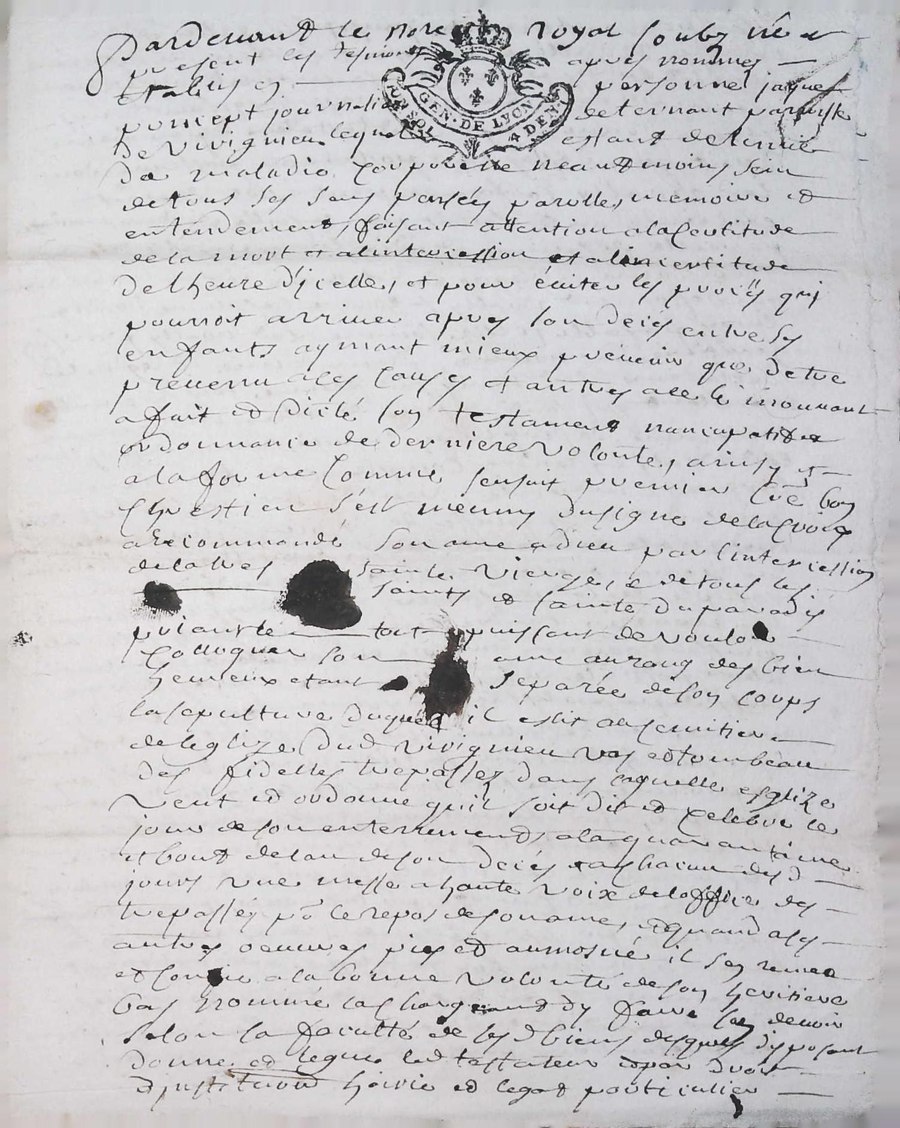 Pardevant le no.re royal soubz.né et
present les tesmoins apres nommes
establis en personne jaques
journalier de ternant paroisse
de Vivignieu lequel estant detenu
de maladie corporelle neantmoins sein
de tous ses sens pensées parolles, memoire et
entendement, faisant attention a la certitude
de la mort et a l'intercession et a l'incertitude
de l'heure d'icelle, et pour eviter les procès qui
pourroit arriver apres son decés entre ses
enfants aymant mieux prevenir que detre
prevenu a ces causes et autres a ce le mouvant
a fait et dicté son testament nuncupatif et
ordonnance de derniere volonté, ainsy et
a la forme comme sensuit premier co.e bon
Chrestien s'est meuny du signe de la croix
a recommandé son ame a dieu par l'intercession
de la tres sainte vierge, et de tous les
saints et sainte du paradis
priant le tout puissant de vouloir
colloquer son ame au rang des bien
heureux etant separée de son corps
la sepulture duquel il eslit au cemitiere
de leglize dud Vivignieu et tombeau
des fidelles trepasses dans laquelle esglize
veut et ordonne qu'il soit dit et celebré le
jour de son enterrement, a la quarantaine
et bout de lan de son decés a chacun desd
jours une messe a haute voix de l'office des
trepassés p.r le repos de son ame, et quand a ses
autres oeuvres pies et aumosne il s'en remet
et confie a la bonne volonté de son heritiere
bas nommé la chargeant dy faire son devoir
selon la faculté de ses d biens desquels disposant
donne et legue led testateur par droit
d'institution hoirie et legat particulier
GEN. DE LYON
SOL
4 DEN